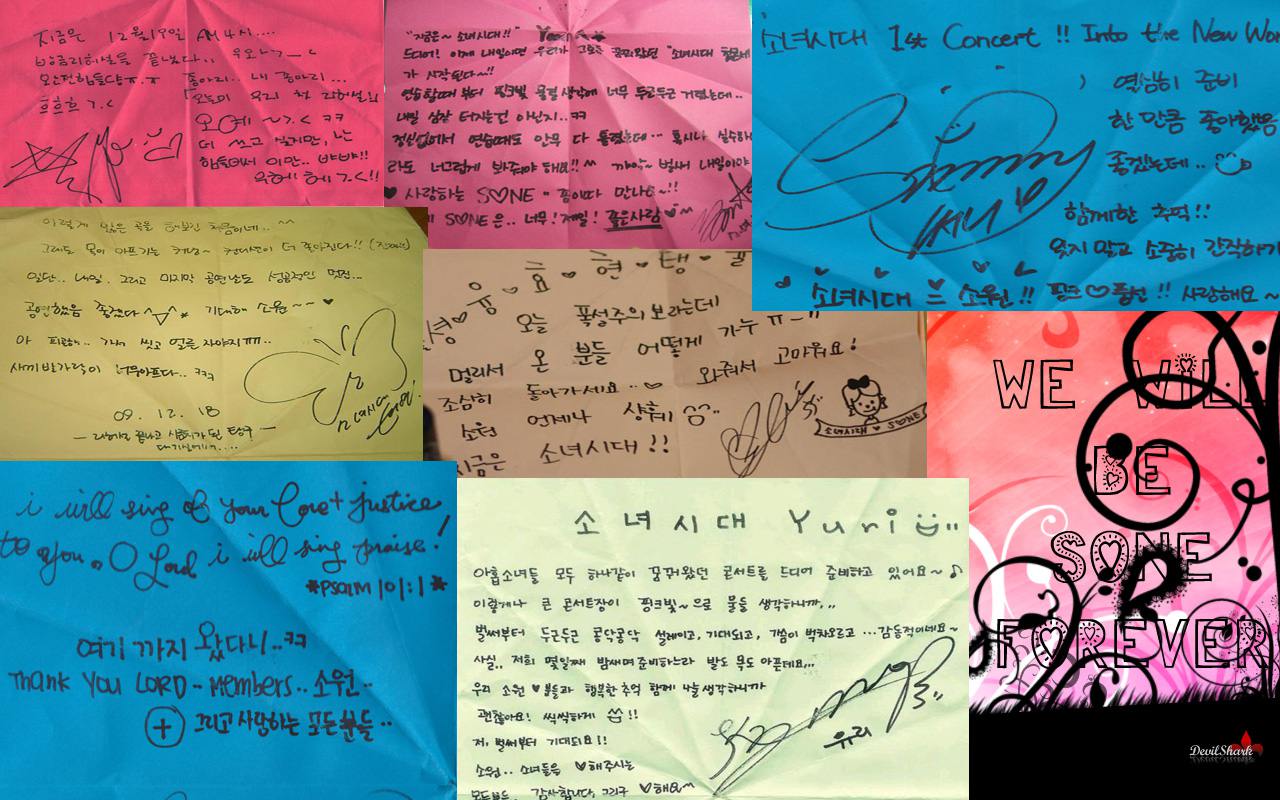 지금은 12월19일 AM 4시....
흐흐흐 ㄱ.<
오예 ~ㄱ.< ㅋㅋ
더 쓰고 싶지만, 난
힘들어서 이만.. 뱌뱌!!
"지금은~ 소녀시대!!"
드디어! 이제 내일이면 우리가 그토록 꿈꿔왔던 "소녀시대
가 시작된다~!!
연습할때부터 핑크빛 물결생각에 너무 두근두근 거렸는데..
내일 심장 터지는건 아닌지..ㅋㅋ
연습때도 안무 다 틀렸는데... 혹시나 실수하
라도 너그럽게 봐주셔야 해요!!^^ 꺄악~ 벌써 내일이야
♥ 사랑하는 S♡NE 만나요~!!
S♡NE은.. 너무! 제일! 좋은사람
소녀시대 1st Concert !! Into the New Wor
열심히 준비
한 만큼 좋아했음
좋겠는데..
함께한 추억!!
잊지 말고 소중히 간직하기
소녀시대 = 소원!! 핑크♡풍선!! 사랑해요~
이렇게 많은 곡을 해보긴 처음이네.. ^^
그래도 목이 아프기는 커녕~ 컨디션이 더 좋아진다!!
일단.. 내일.. 그리고 마지막 공연날도 성공적인 멋진...
공연했음 좋겠다 기대해 소원~~ ♥
아 피곤해.. 가서 씻고 얼른 자야지 ㅠㅠ..
새끼발가락이 너무아프다.. ㅋㅋㅋ
09. 12. 18
소녀시대
효 ♥ 현 ♥ 탱 ♥
오늘 폭설주의보라는데
멀리서 온 분들 어떻게 가누 ㅠ_ㅠ
조심히 돌아가세요..♡ 와줘서 고마워요!
소원 언제나 샹휘
지금은 소녀시대!!
소녀시대 ♥ S♡NE
WE WILL
BE
SONE
FOREVER
DevilShark
i will sing of your love + justice
to you, O Lord i will sing praise!
*PSalM 101:1*
여기까지 왔다니..ㅋㅋ
Thank You LORD.. Members.. 소원..
+ 그리고 사랑하는 모든분들..
소녀시대 Yuri
아홉소녀들 모두 하나같이 꿈꿔왔던 콘서트를 드디어 준비하고 있어요~♪
이렇게나 큰 콘서트장이 핑크빛~으로 물들 생각하니까...
벌써부터 두근두근 콩닥콩닥 설레이고, 기대되고, 가슴이 벅차오르고 ...감동적이네요~
사실.. 저희 몇일째 밤새며 준비하느라 발도 목도 아픈데요...
우리 소원♥분들과 행복한 추억 함께 나눌생각하니까
괜찮아요! 씩씩하게 !!
저, 벌써부터 기대되요!!
소원.. 소녀들을 ♥해주시는
감사합니다, 그리구 ♡해요~
유리